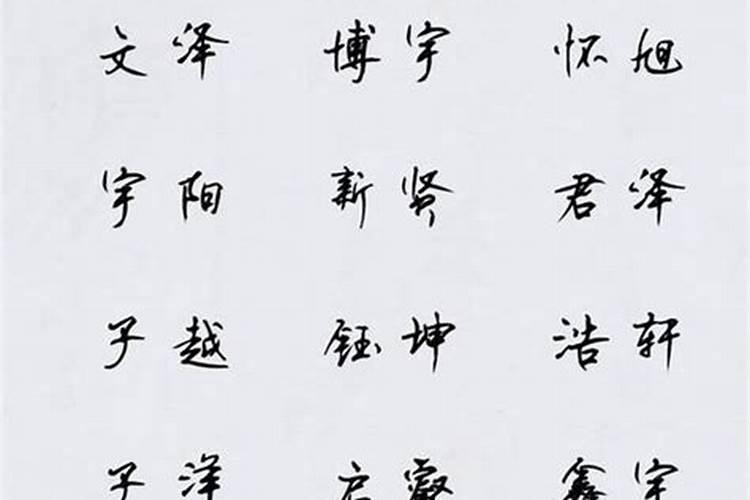 文泽 博宇 怀旭
宇阳 新贤 君泽
子越 钰坤 浩轩
子泽 启睿 鑫宇